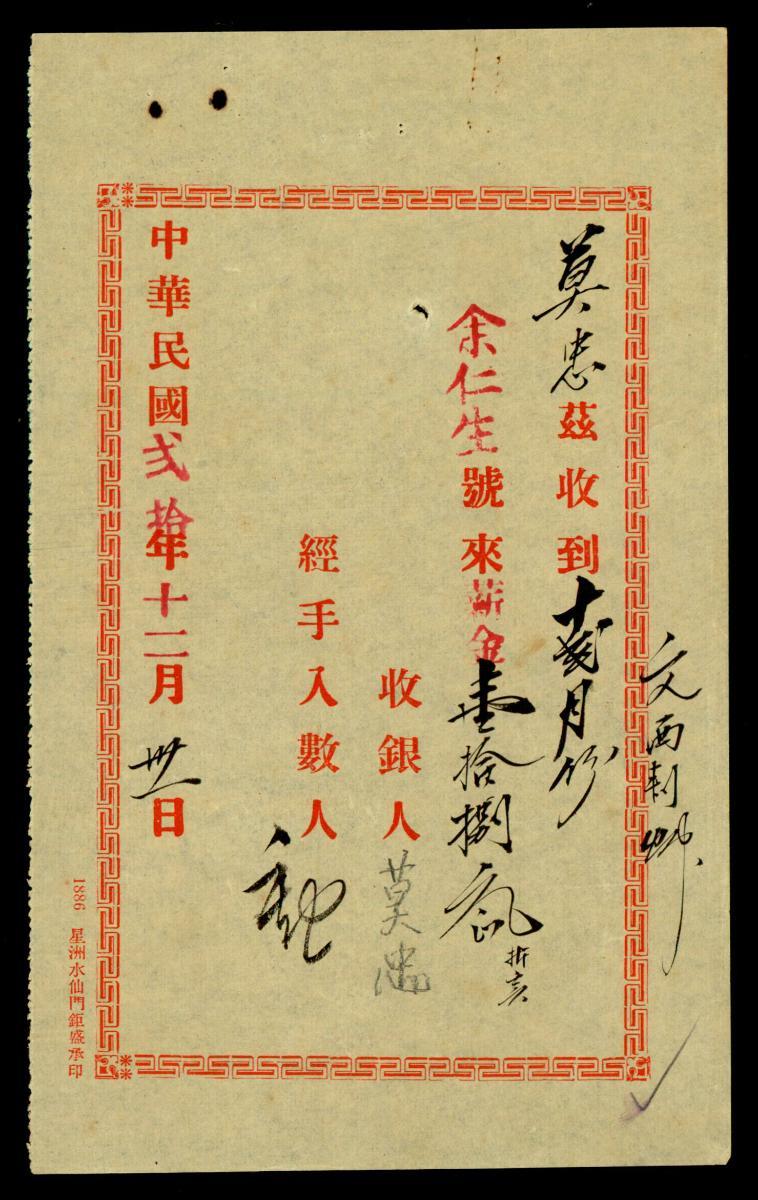 文西剌
莫忠茲收到十弍月份
余仁生號來薪金壹拾捌
收銀人莫忠
經手入數人
中華民國弍拾年十二月卅一日
1886 星洲水仙門鉅盛承印